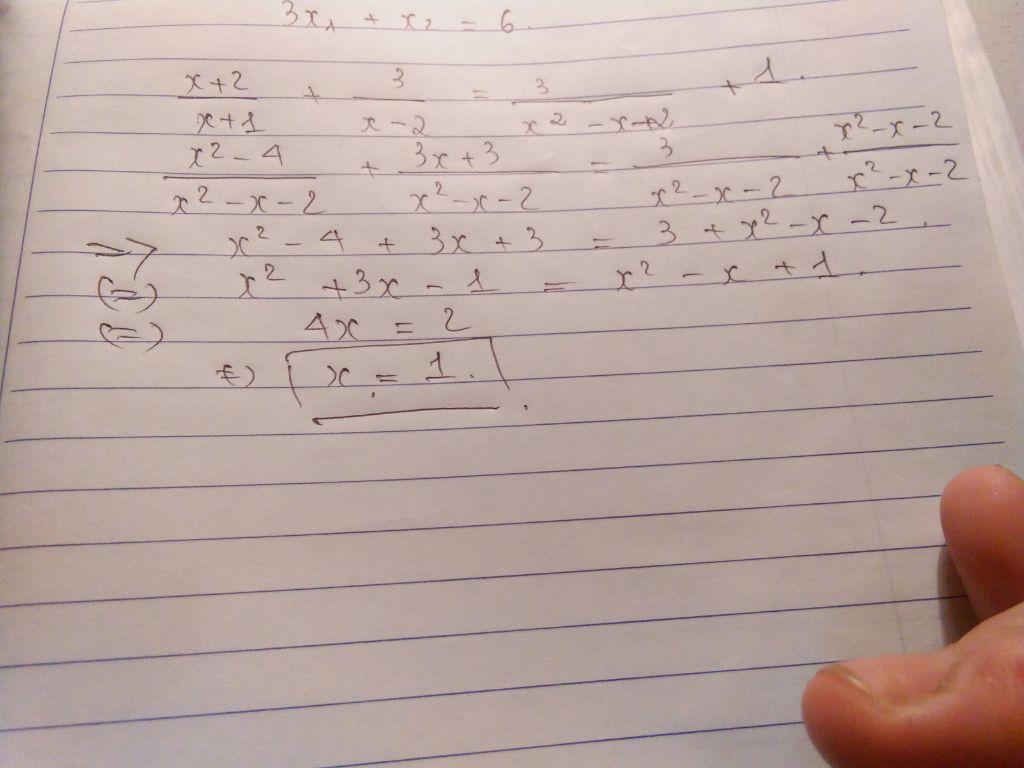 3x₁ + x₂ = 6.
(x+2)/(x+1) + 3/(x-2) = 3/(x² - x - 2) + 1.
(x² - 4)/(x² - x - 2) + (3x + 3)/(x² - x - 2) = 3/(x² - x - 2) + (x² - x - 2)/(x² - x - 2)
=> x² - 4 + 3x + 3 = 3 + x² - x - 2.
(=) x² + 3x - 1 = x² - x + 1.
(=) 4x = 2
(=) x = 1.